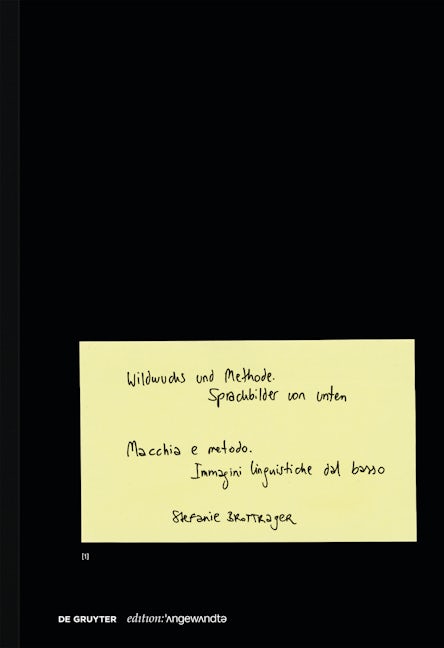 Wildwuchs und Methode.
Sprachbilder von unten
Macchia e metodo.
Immagini linguistiche dal basso
Stefanie Brottrager
[1]
DE GRUYTER edition:'ʌngewʌndtə